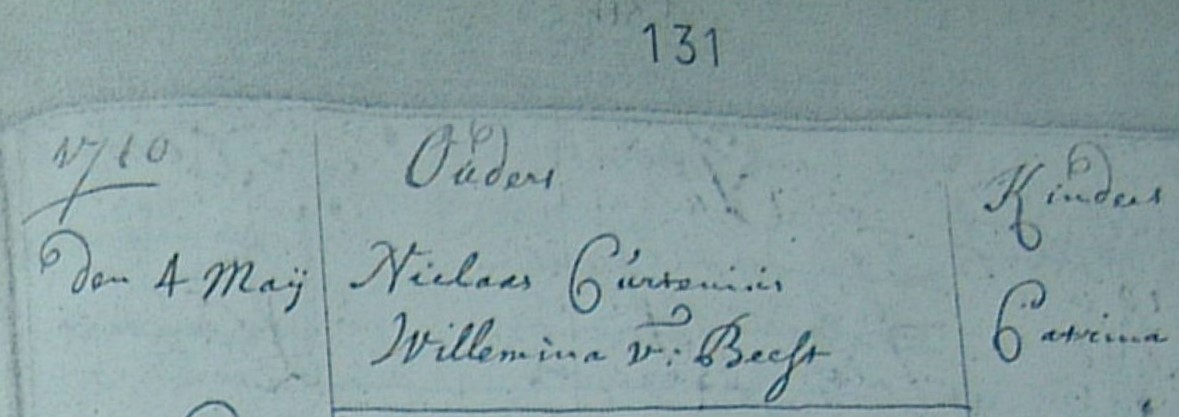 131
1710
Ouders
Kinders
den 4 Maÿ
Niclaas Cúrtenius
Willemina v: Beest
Catrina